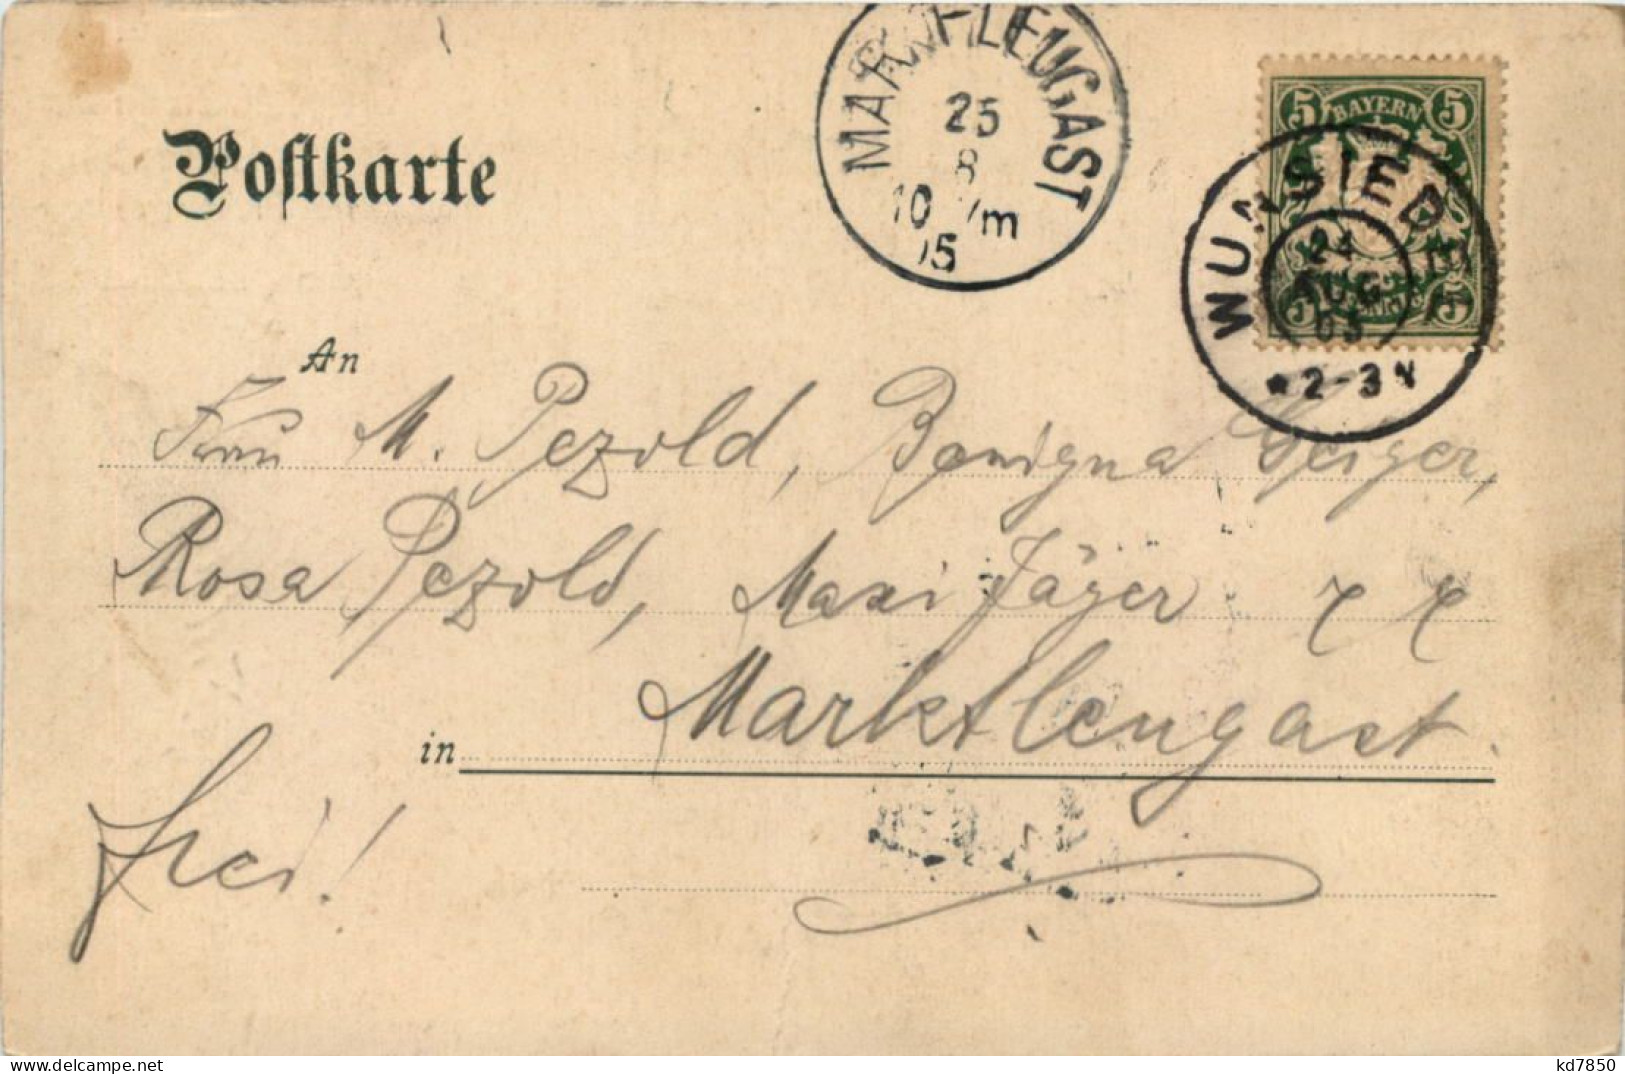 Postkarte
MARKTLEUGAST
25
8
10 V/m
05
BAYERN
5 5
5 5
WUNSIEDEL
24
AUG
05
2-3 N
An
Frau M. Pezold, Benigna Geiger,
Rosa Pezold, Maxi Jäger
in Marktleugast.
frei!
delcampe.net
kd7850